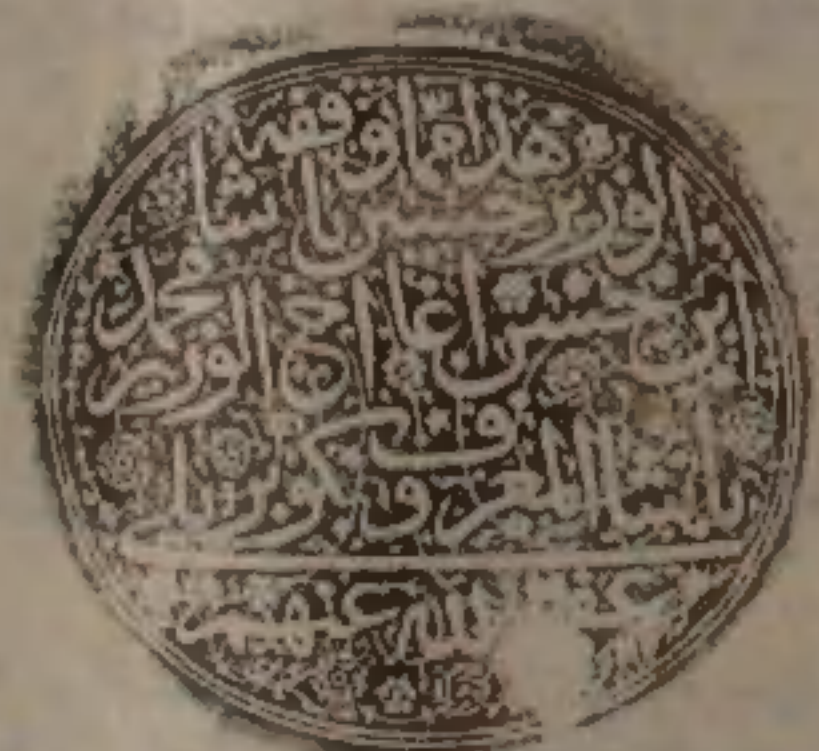 هذا مما وقفه
الوزير حسين باشا
ابن حسن اغا اخ الوزير محمد
باشا المعروف بكوبريلي
الله عنهم